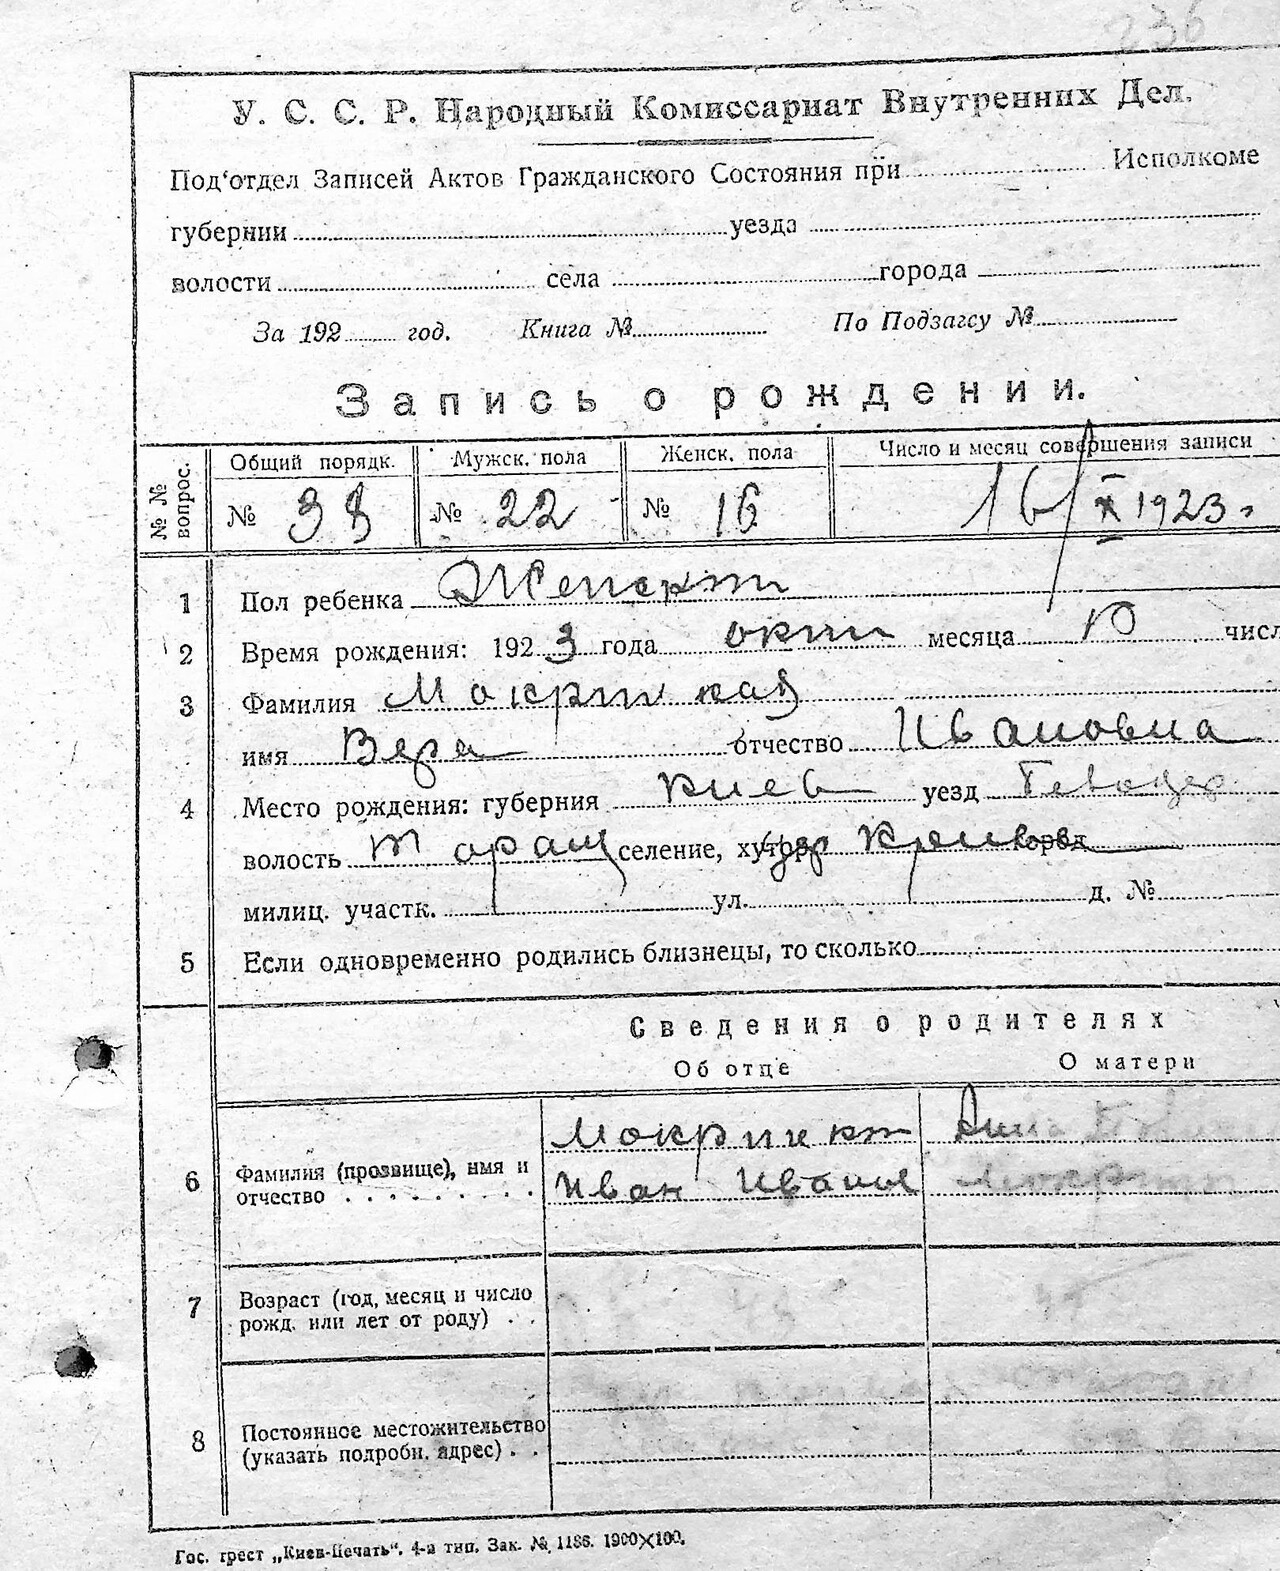 236
У. С. С. Р. Народный Комиссариат Внутренних Дел.
Под‘отдел Записей Актов Гражданского Состояния при Исполкоме
губернии уезда
волости села города
За 192 год. Книга № По Подзагсу №
Запись о рождении.
№ № вопрос. Общий порядк. Мужск. пола Женск. пола Число и месяц совершения записи
№ 38 № 22 № 16 16/X 1923.
1 Пол ребенка Женск
2 Время рождения: 1923 года окт месяца 10 числ
3 Фамилия
имя Вера отчество Ивановна
4 Место рождения: губерния Киев уезд
волость Таращ селение, хутор
милиц. участк. ул. д. №
5 Если одновременно родились близнецы, то сколько
Сведения о родителях
Об отце О матери
6 Фамилия (прозвище), имя и Анна
отчество Иван Иванов
7 Возраст (год, месяц и число
рожд. или лет от роду)
8 Постоянное местожительство
(указать подробн. адрес)
Гос. трест „Киев-Печать“. 4-я тип. Зак. № 1186. 1900×100.